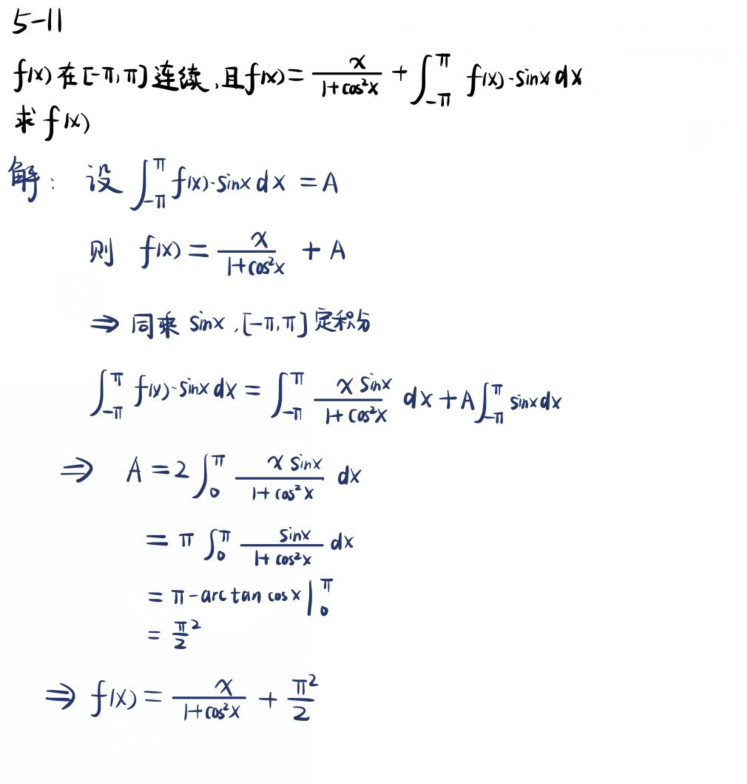 5-11
f(x)在[-π,π]连续,且f(x)= x/(1+cos²x) + ∫_{-π}^{π} f(x)·sinx dx
求f(x)
解: 设 ∫_{-π}^{π} f(x)·sinx dx = A
则 f(x) = x/(1+cos²x) + A
⇒ 同乘 sinx, [-π,π] 定积分
∫_{-π}^{π} f(x)·sinx dx = ∫_{-π}^{π} x sinx/(1+cos²x) dx + A∫_{-π}^{π} sinx dx
⇒ A = 2∫_{0}^{π} x sinx/(1+cos²x) dx
= π ∫_{0}^{π} sinx/(1+cos²x) dx
= π-arc tan cos x |_{0}^{π}
= π/2 ²
⇒ f(x) = x/(1+cos²x) + π²/2